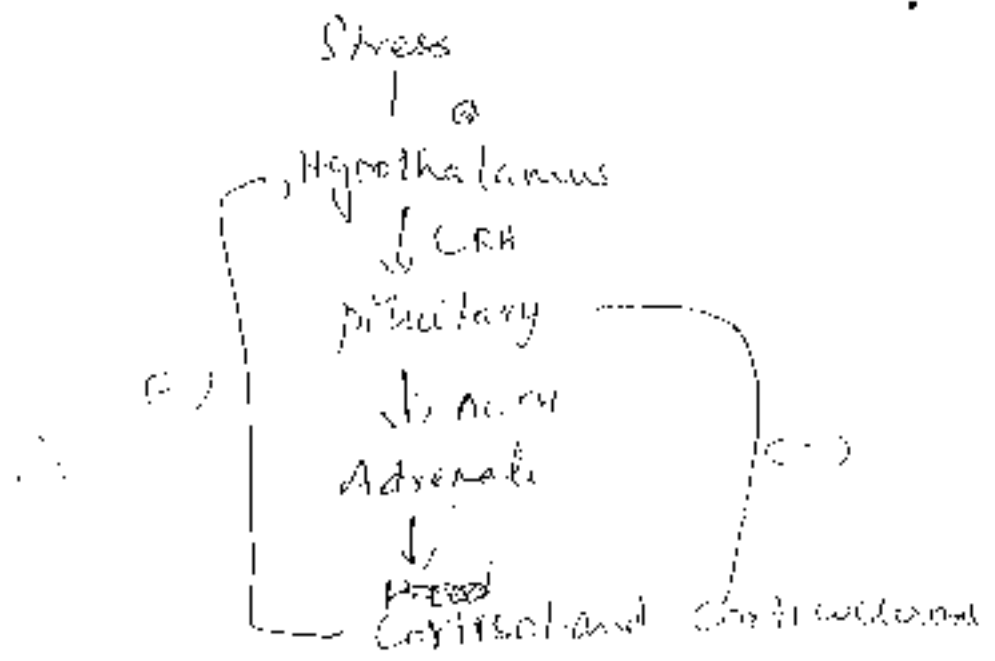 Stress
Hypothalamus
CRH
pituitary
(-)
ACTH
(-)
Adrenals
Cortisol and Corticosterone